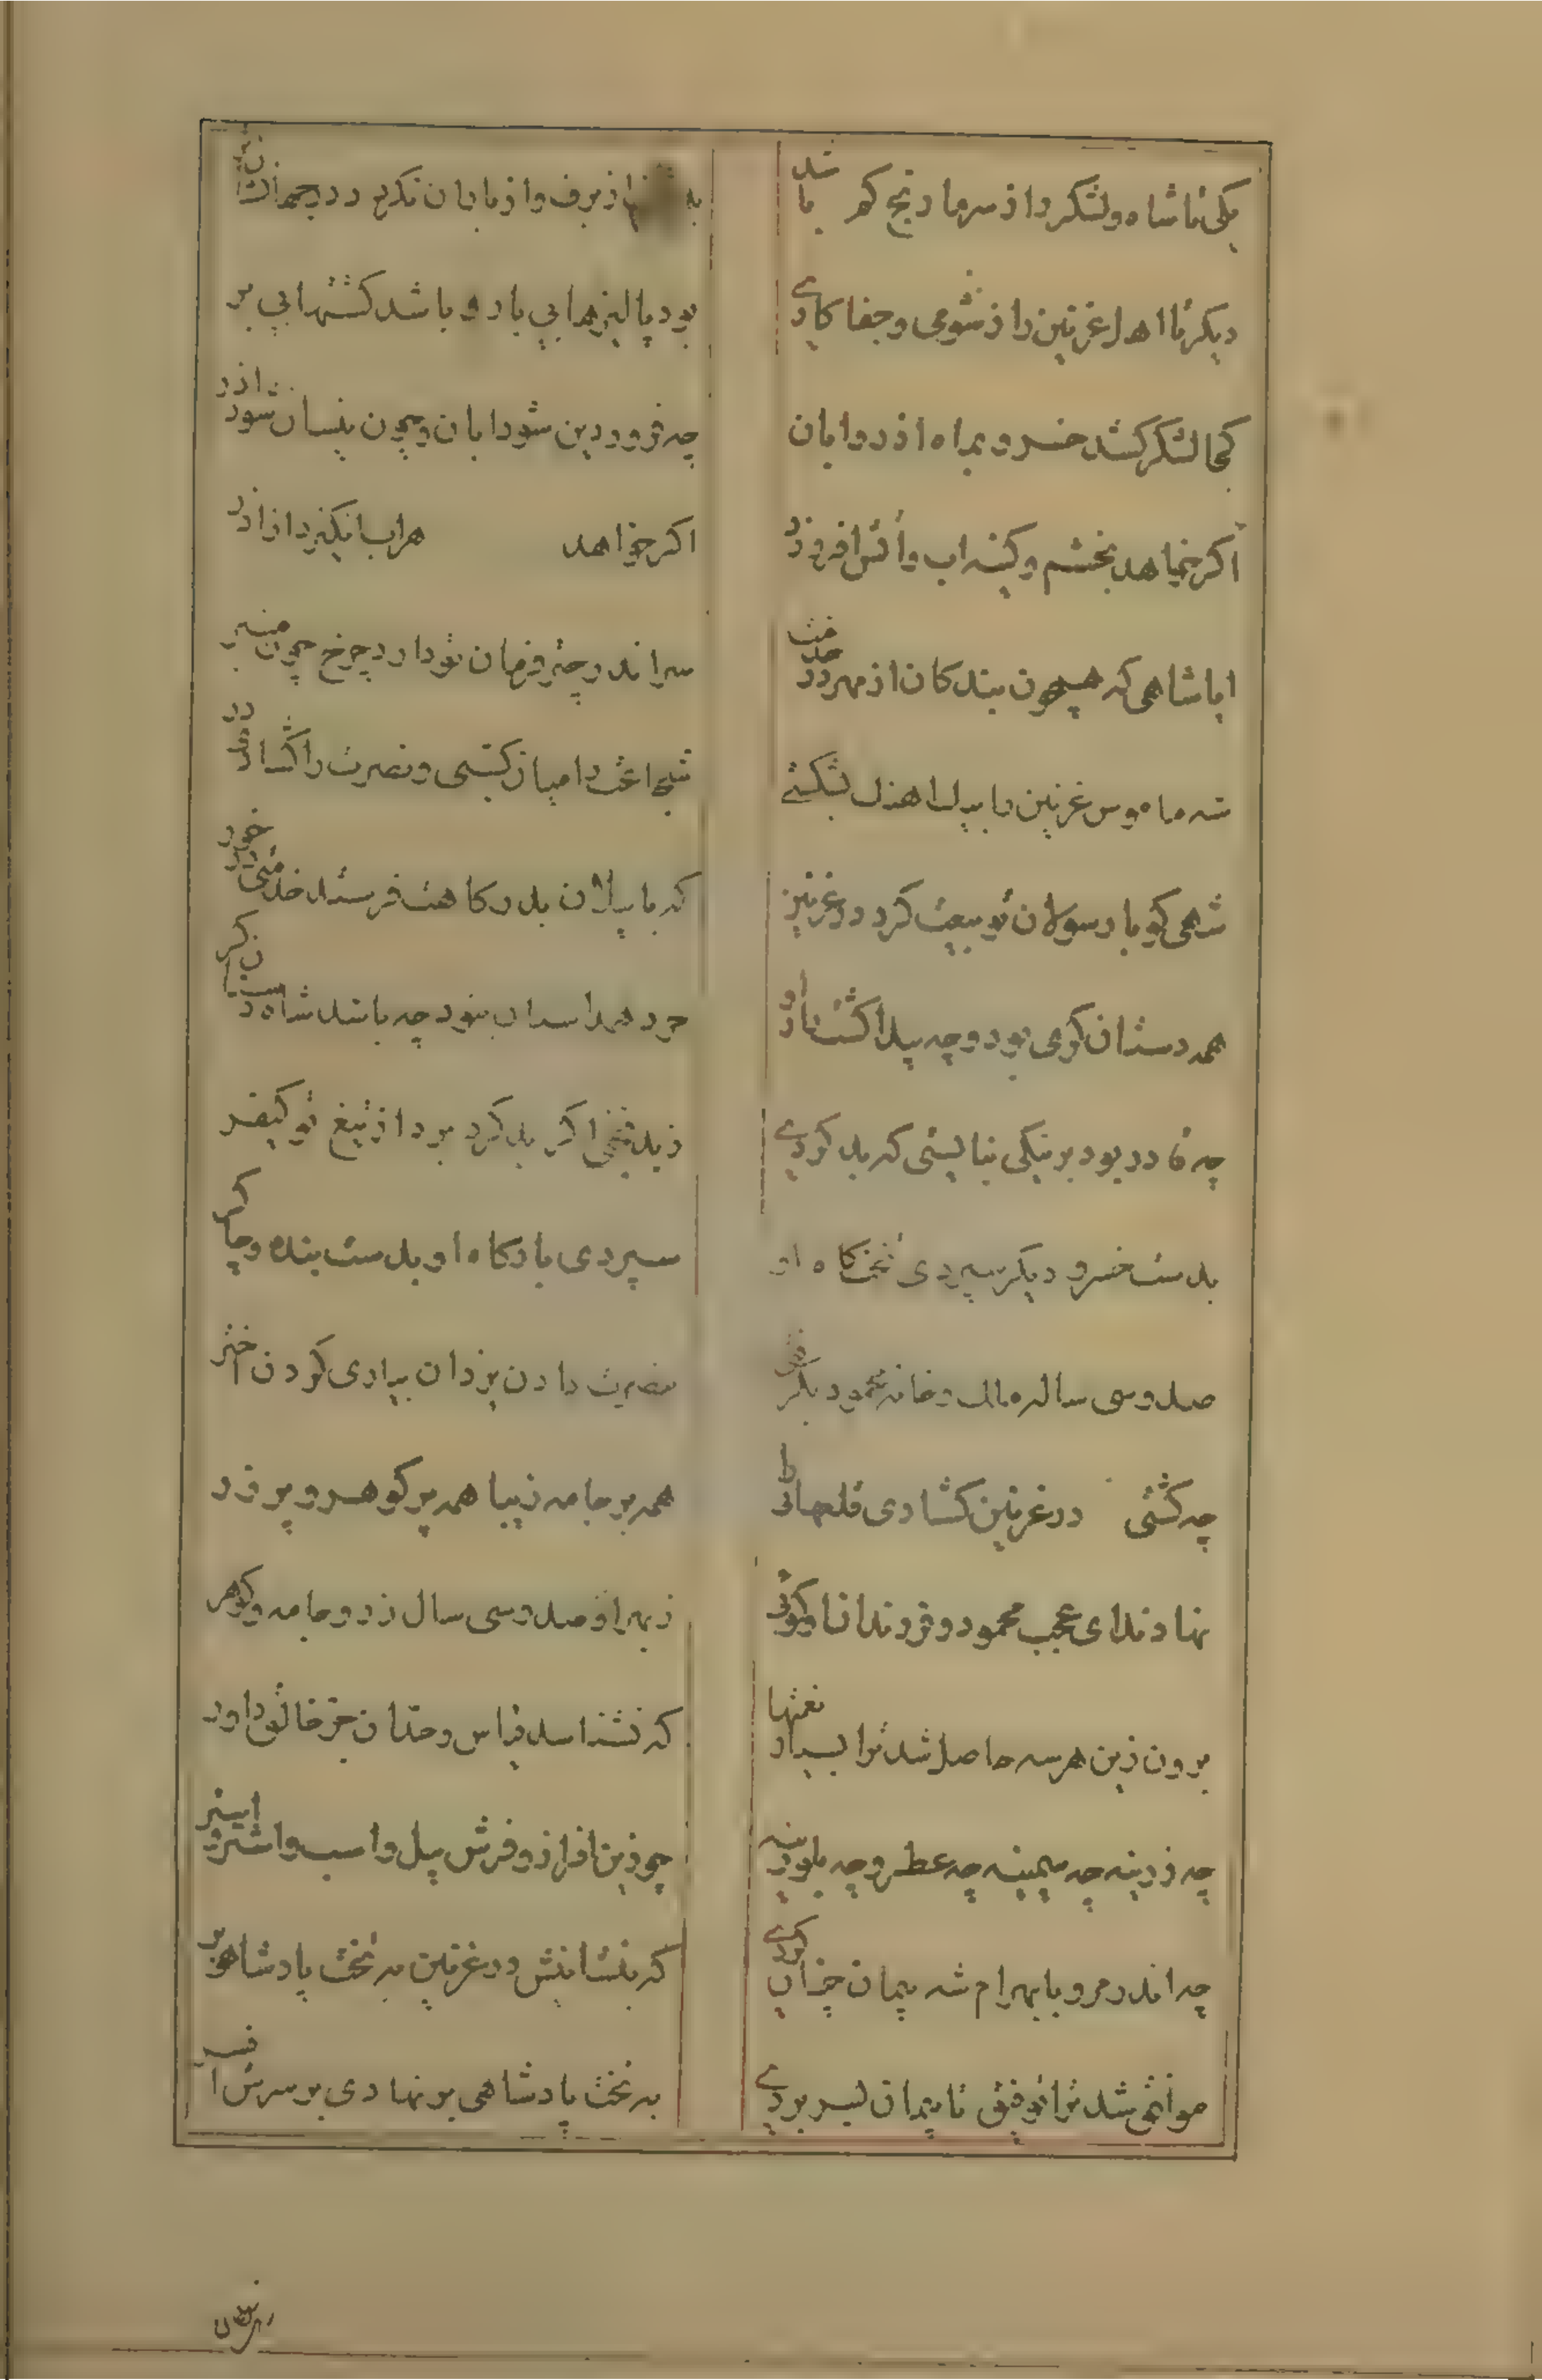 یکی تا شاه و لشکر را ز سرما رنج کم باشد از برف و از باران نکردد در جهان
دیکر تا اهل غزنین را ز شومی و جفاکاری بود پالیزهابی بار و باشد کشتهابی بر
کجا لشکر کشد خسرو بماه اذر و ابان چه فروردین شود ابان و چون نیسان شود اذر
اکر خواهد بخشم و کینه اب و اتش افروزد اکر خواهد هراب انکیزد از اذر
ایا شاهی که همچون بندکان از مهر در خدمت سر اندر چنبر فرمان تو دارد چرخ چون چنبر
شه ماه و س غزنین با پیل شکستی شجاعت را میان بستی و نصرت را کشادی در
شهی کو با رسولان تو بیعت کرد در غزنین که با پیلان بدرکاهت فرستد خدمتی در خور
همه دستان کری بود و چه پیدا کشت باشد شاه
چه قادر بود بر نیکی نبایستی که بد کردی ز بدبختی اکر بد کرد برد از تیغ تو کیفر
بدست خسرو دیکر سپردی تختکاه او سپردی بارکاه او بدست بنده و چاکر
صد و سی ساله مالک و خانه محمود نصرت دادن یزدان بیاری کردن اختر
چه کشتی در غزنین کشادی قلعهائی را همه بر جامه زیبا همه پر کوهر و پر زر
نهادند ای عجب محمود و فرزندان او کوئی ز بهر او صد و سی سال زر و جامه و کوهر
برون زین هر سه حاصل شد ترا بسیار نعمتها که نشناسد قیاس و حد ان جز خالق داور
چه زرینه چه سیمینه چه عطر و چه بلورینه چو زین افزار و فرش پیل و اسب و اشتر و استر
چه اندر مرو با بهرام شه پیمان چنان کردی که بنشانیش در غزنین به تخت پادشاهی بر
موافق شد ترا توفیق تا پیمان بسر بردی به تخت پادشاهی بر نهادی بر سرش افسر